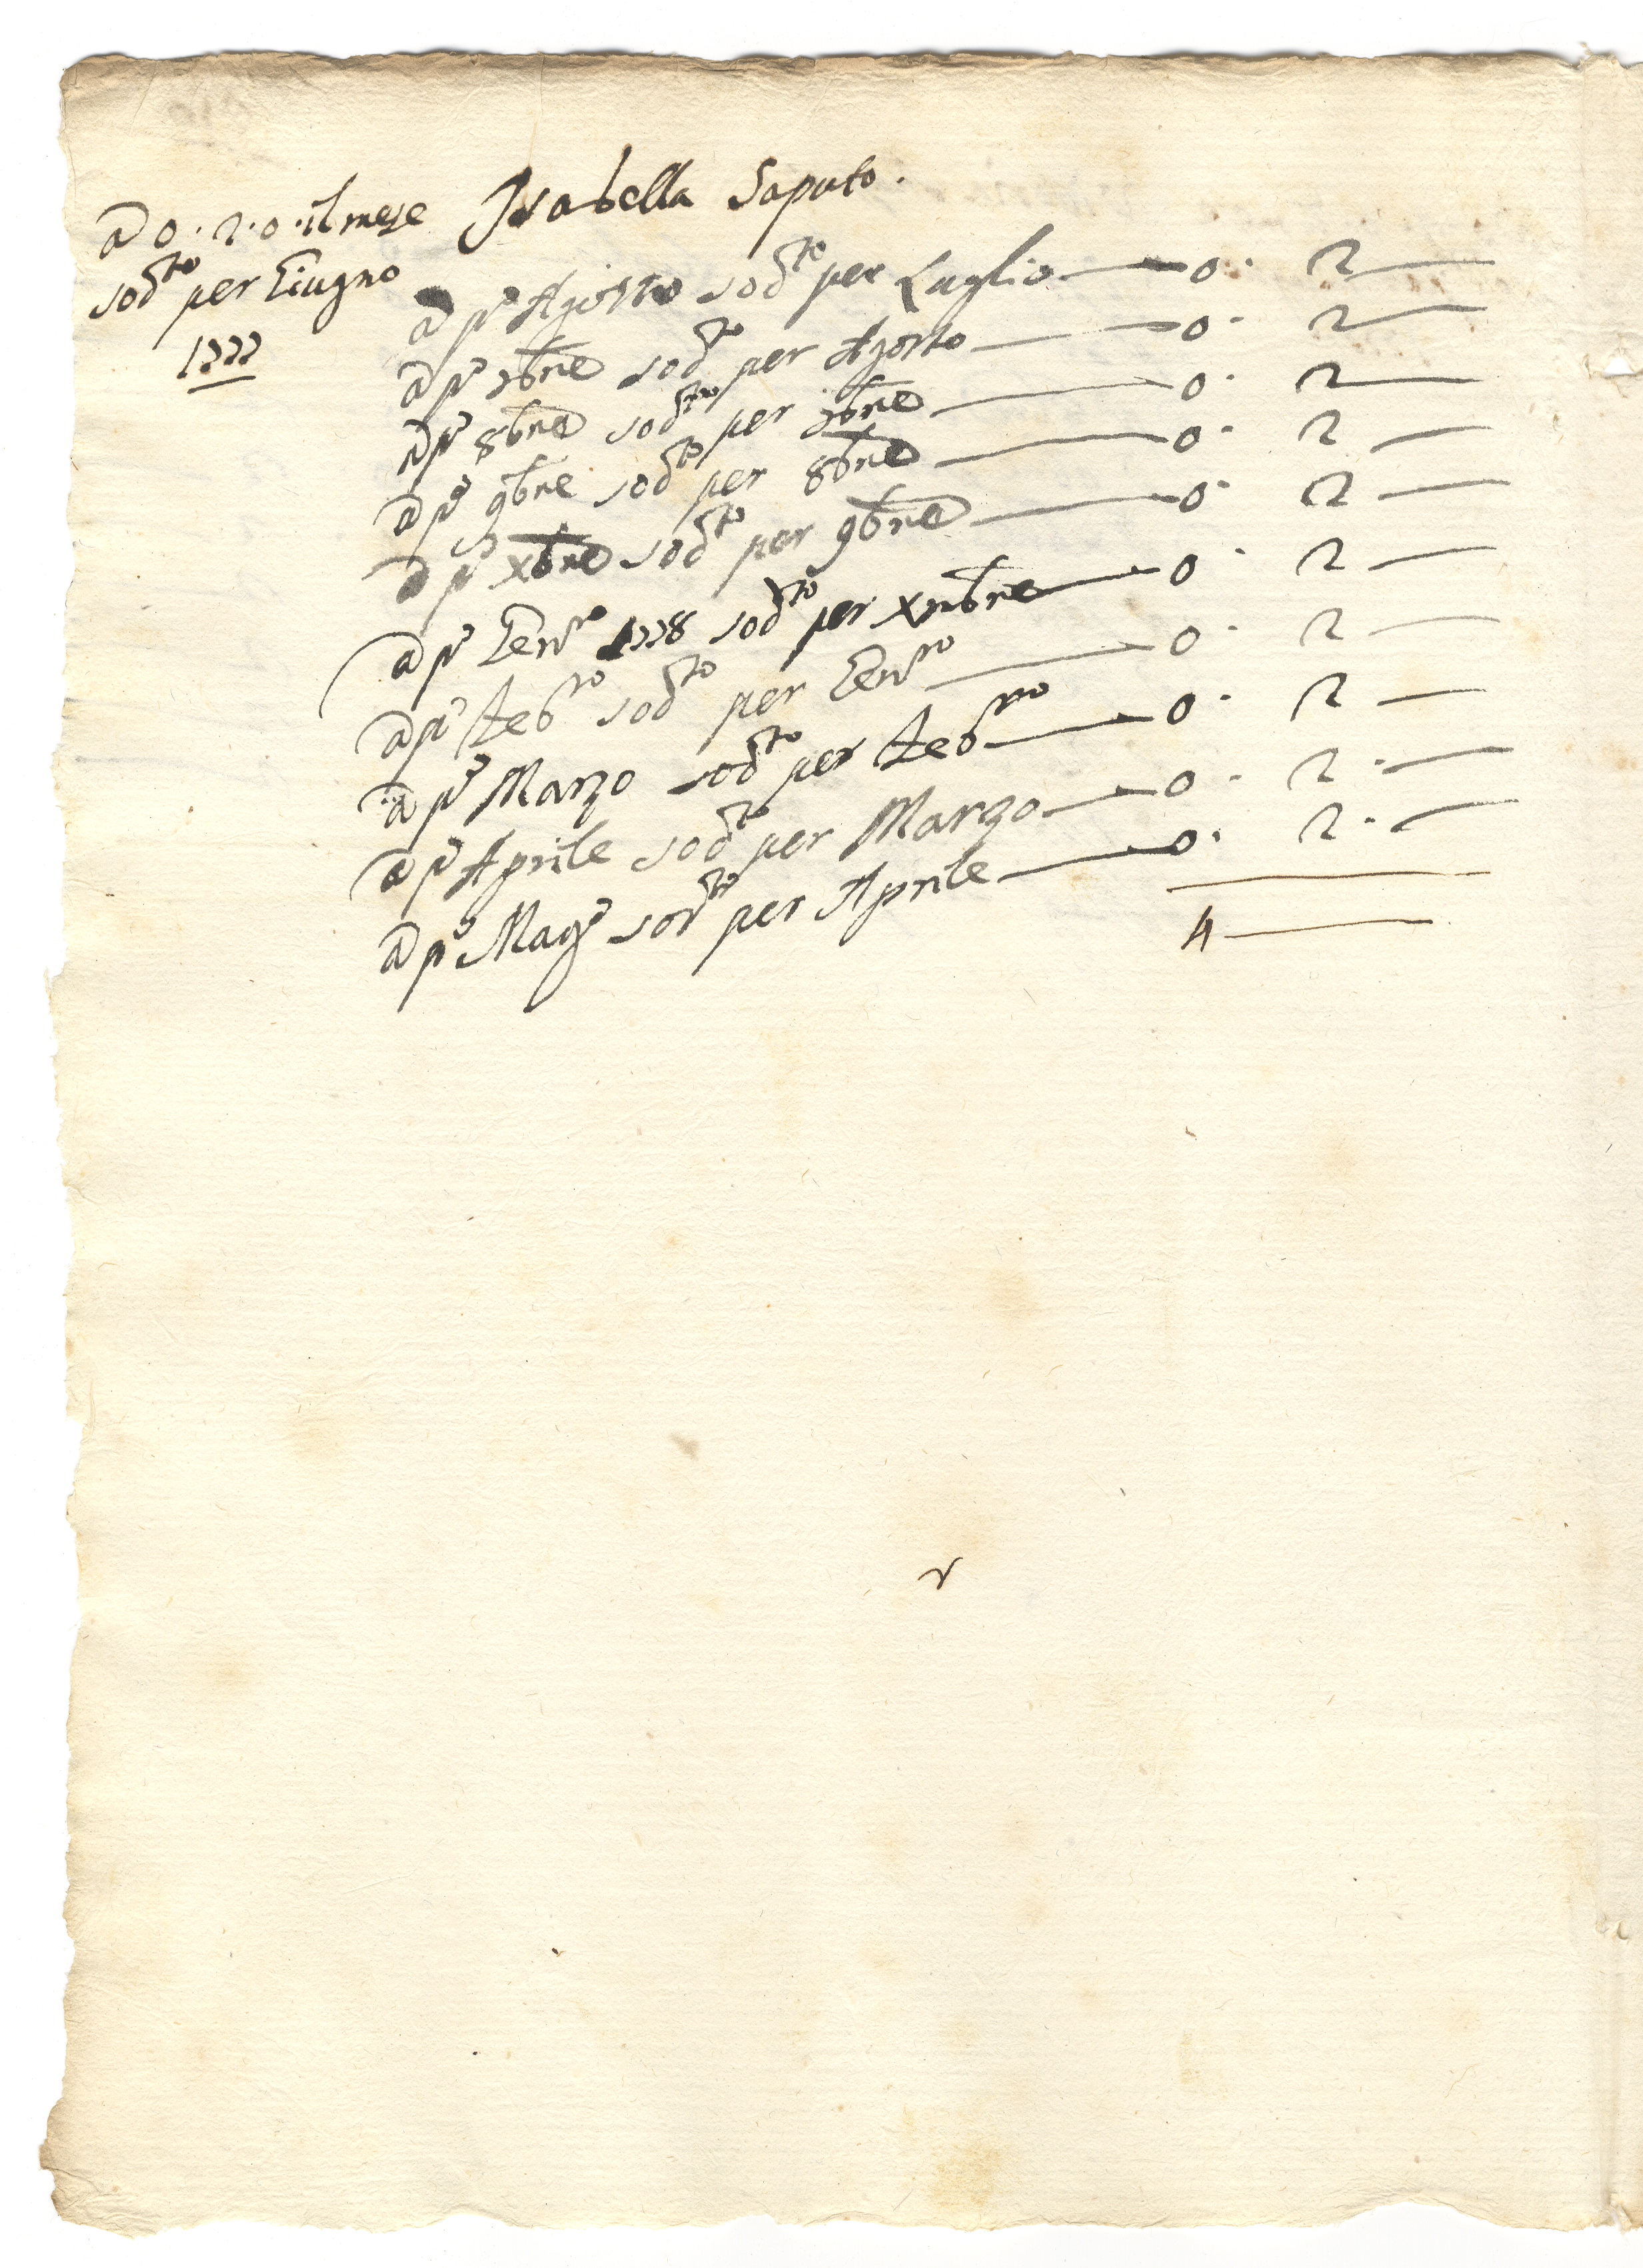 Isabella Saputo.
a 0.2.0. il mese
sod.to per Giugno
1777
a p.o Agosto sod.to per Luglio — 0. 2 —
a p.o 7bre sod.to per Agosto — 0. 2 —
a p.o 8bre sod.to per 7bre — 0. 2 —
a p.o 9bre sod.to per 8bre — 0. 2 —
a p.o xbre sod.to per 9bre — 0. 2 —
a p.o Gen.ro 1778 sod.to per xmbre — 0. 2 —
a p.o Feb.ro sod.to per Gen.ro — 0. 2 —
a p.o Marzo sod.to per Feb.ro — 0. 2 —
a p.o Aprile sod.to per Marzo — 0. 2. —
a p.o Mag.o sod.to per Aprile — 0. 2. —
4 —